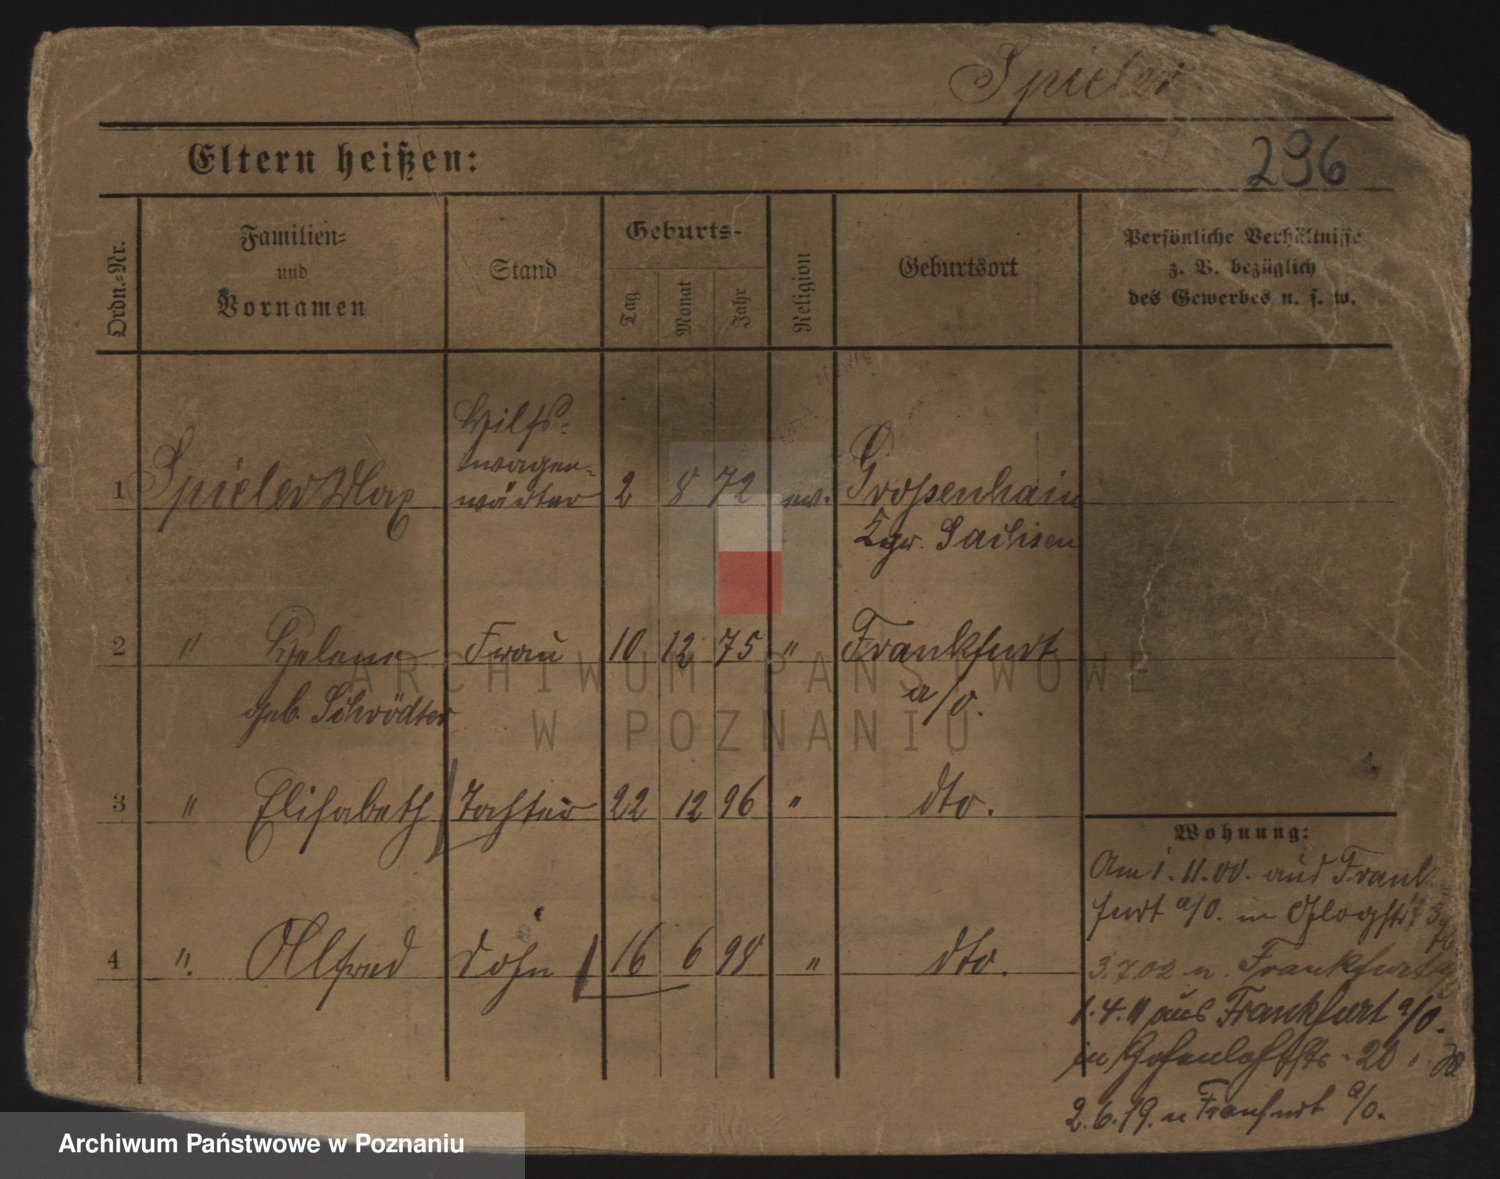 Spieler
Eltern heißen:
296
Ordn.-Nr.
Familien-
und
Vornamen
Stand
Geburts-
Tag
Monat
Jahr
Religion
Geburtsort
Persönliche Verhältnisse
z. B. bezüglich
des Gewerbes u. s. w.
Hilfs-
wagen-
1 Spieler Max wärter 2 8 72 ev. Großenhain
Kgr. Sachsen
2 " Helene Frau 10 12 75 " Frankfurt
geb. Schrödter a/O.
3 " Elisabeth Tochter 22 12 96 " dto.
4 ". Alfred Sohn 16 6 98 " dto.
Wohnung:
Am 1.11.00. aus Frank-
furt a/O. in Glogstr.
3.7.02 n. Frankfurt
1.4.11 aus Frankfurt a/O.
in Hohenlohestr. 20
2.6.19. n Frankfurt a/O.
ARCHIWUM PAŃSTWOWE
W POZNANIU
Archiwum Państwowe w Poznaniu